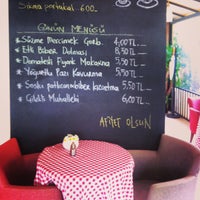 Sıkma portakal 6.00
GÜNÜN MENÜSÜ
* Süzme Mercimek Çorb. 4,00 TL
* Etli Biber Dolması 8,50 TL
* Domatesli Fiyonk Makarna 5,50 TL
* Yoğurtlu Pazı Kavurma 5,50 TL
* Soslu patlıcan biber kızartma 5,50 TL
* Güllü Muhallebi 6,00 TL
AFİYET OLSUN